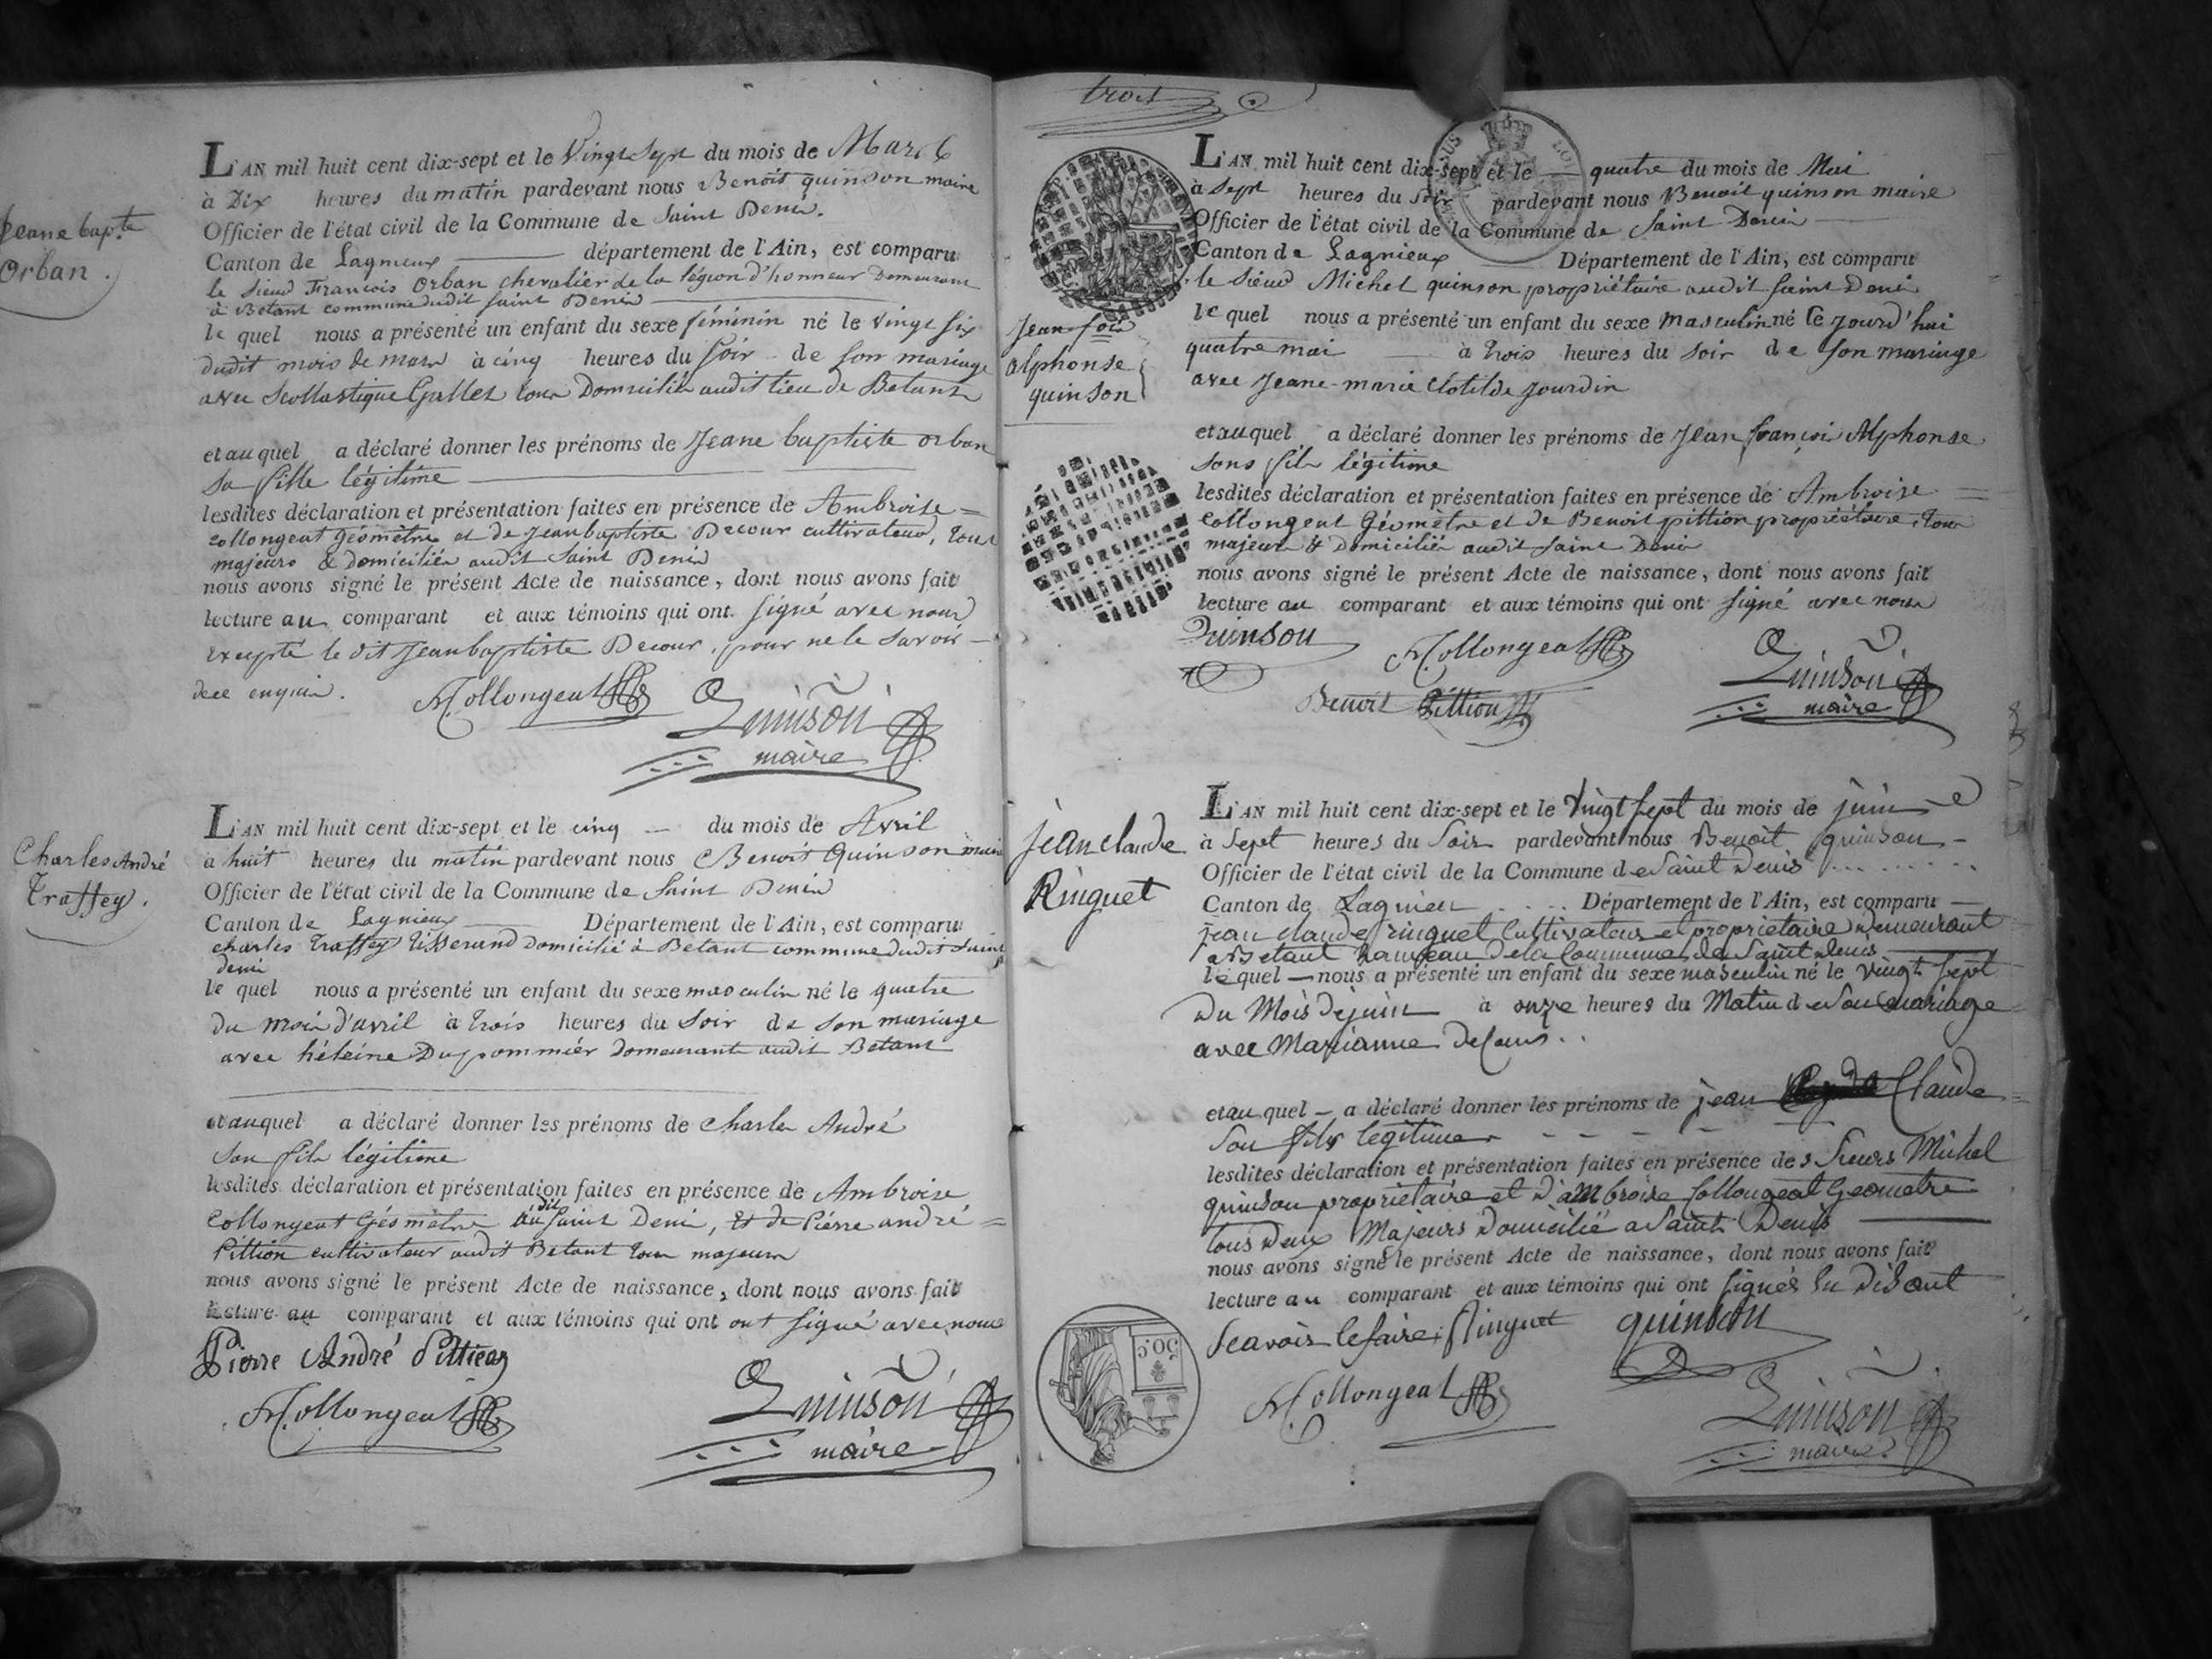 Jeane bap.te
Orban.
L'AN mil huit cent dix-sept et le Vingt Sept du mois de Mars
à Dix heures du matin pardevant nous Benoit quinson maire
Officier de l'état civil de la Commune de Saint Denis.
Canton de Lagnieux département de l'Ain, est comparu
le Sieud François Orban chevalier de la légion d'honneur Demeurant
à Betant commune dudit Saint Denis
le quel nous a présenté un enfant du sexe féminin né le vingt six
dudit mois de mars à cinq heures du soir de son mariage
avec Scollastique Gallet tous Domiciliés audit lieu de Betant
et au quel a déclaré donner les prénoms de Jeane baptiste orban
sa fille légitime
lesdites déclaration et présentation faites en présence de Ambroise =
Collongeat Géomètre et de Jean baptiste Decour cultivateur, tous
majeurs & domiciliés audit Saint Denis
nous avons signé le présent Acte de naissance, dont nous avons fait
lecture au comparant et aux témoins qui ont signé avec nous
excepté le dit Jean baptiste Decour, pour ne le savoir
de ce enquis.
Collongeat
Quinson
maire
Charles André
Traffey.
L'AN mil huit cent dix-sept et le cinq du mois de Avril
à huit heures du matin pardevant nous Benoit Quinson maire
Officier de l'état civil de la Commune de Saint Denis
Canton de Lagnieux Département de l'Ain, est comparu
charles Traffey Tisserand domicilié à Betant commune dudit Saint
denis
le quel nous a présenté un enfant du sexe masculin né le quatre
du mois d'avril à trois heures du soir de son mariage
avec héléine Dupommiér domeurante audit Betant
et auquel a déclaré donner les prénoms de charles André
son fils légitime
lesdites déclaration et présentation faites en présence de Ambroise
Collongeat Géomètre dit Saint Denis, et de Pierre andré =
Pittion cultivateur audit Betant tous majeurs
nous avons signé le présent Acte de naissance, dont nous avons fait
lecture au comparant et aux témoins qui ont ont signé avec nous
Pierre André Pittion
Collongeat
Quinson
maire
trois
Jean fois
alphonse
quinson
L'AN mil huit cent dix-sept et le quatre du mois de Mai
à Sept heures du soir pardevant nous Benoit quinson maire
Officier de l'état civil de la Commune de Saint Denis
Canton de Lagnieux Département de l'Ain, est comparu
le Sieud Michel quinson propriétaire audit Saint Denis
le quel nous a présenté un enfant du sexe masculin né le jourd'hui
quatre mai à trois heures du soir de son mariage
avec Jeane-marie Clotilde Jourdin
et au quel a déclaré donner les prénoms de Jean françois Alphonse
sons fils légitime
lesdites déclaration et présentation faites en présence de Ambroise =
Collongeat Géomètre et de Benoit pittion propriétaire, tous
majeurs & Domiciliés audit Saint Denis
nous avons signé le présent Acte de naissance, dont nous avons fait
lecture au comparant et aux témoins qui ont signé avec nous
Quinson
Collongeat
Benoit Pittion
Quinson
maire
jean claude
Ringuet
L'AN mil huit cent dix-sept et le vingt sept du mois de juin
à Sept heures du Soir pardevant nous Benoit quinson
Officier de l'état civil de la Commune de Saint Denis
Canton de Lagnieu Département de l'Ain, est comparu
jean claude ringuet Cultivateur et propriétaire demeurant
a Betant hameau De la Commune de Saint denis
le quel nous a présenté un enfant du sexe masculin né le vingt sept
du Mois de juin à onze heures du Matin de Son mariage
avec Marianne
et au quel a déclaré donner les prénoms de jean Claude
Son fils legitime
lesdites déclaration et présentation faites en présence des Sieurs Michel
quinson propriétaire et d'ambroise Collongeat Geometre
tous deux Majeurs Domicilié a Saint Denis
nous avons signé le présent Acte de naissance, dont nous avons fait
lecture au comparant et aux témoins qui ont signés Du Disant
Scavoir le faire. Ringuet
quinson
Collongeat
Quinson
maire
50c